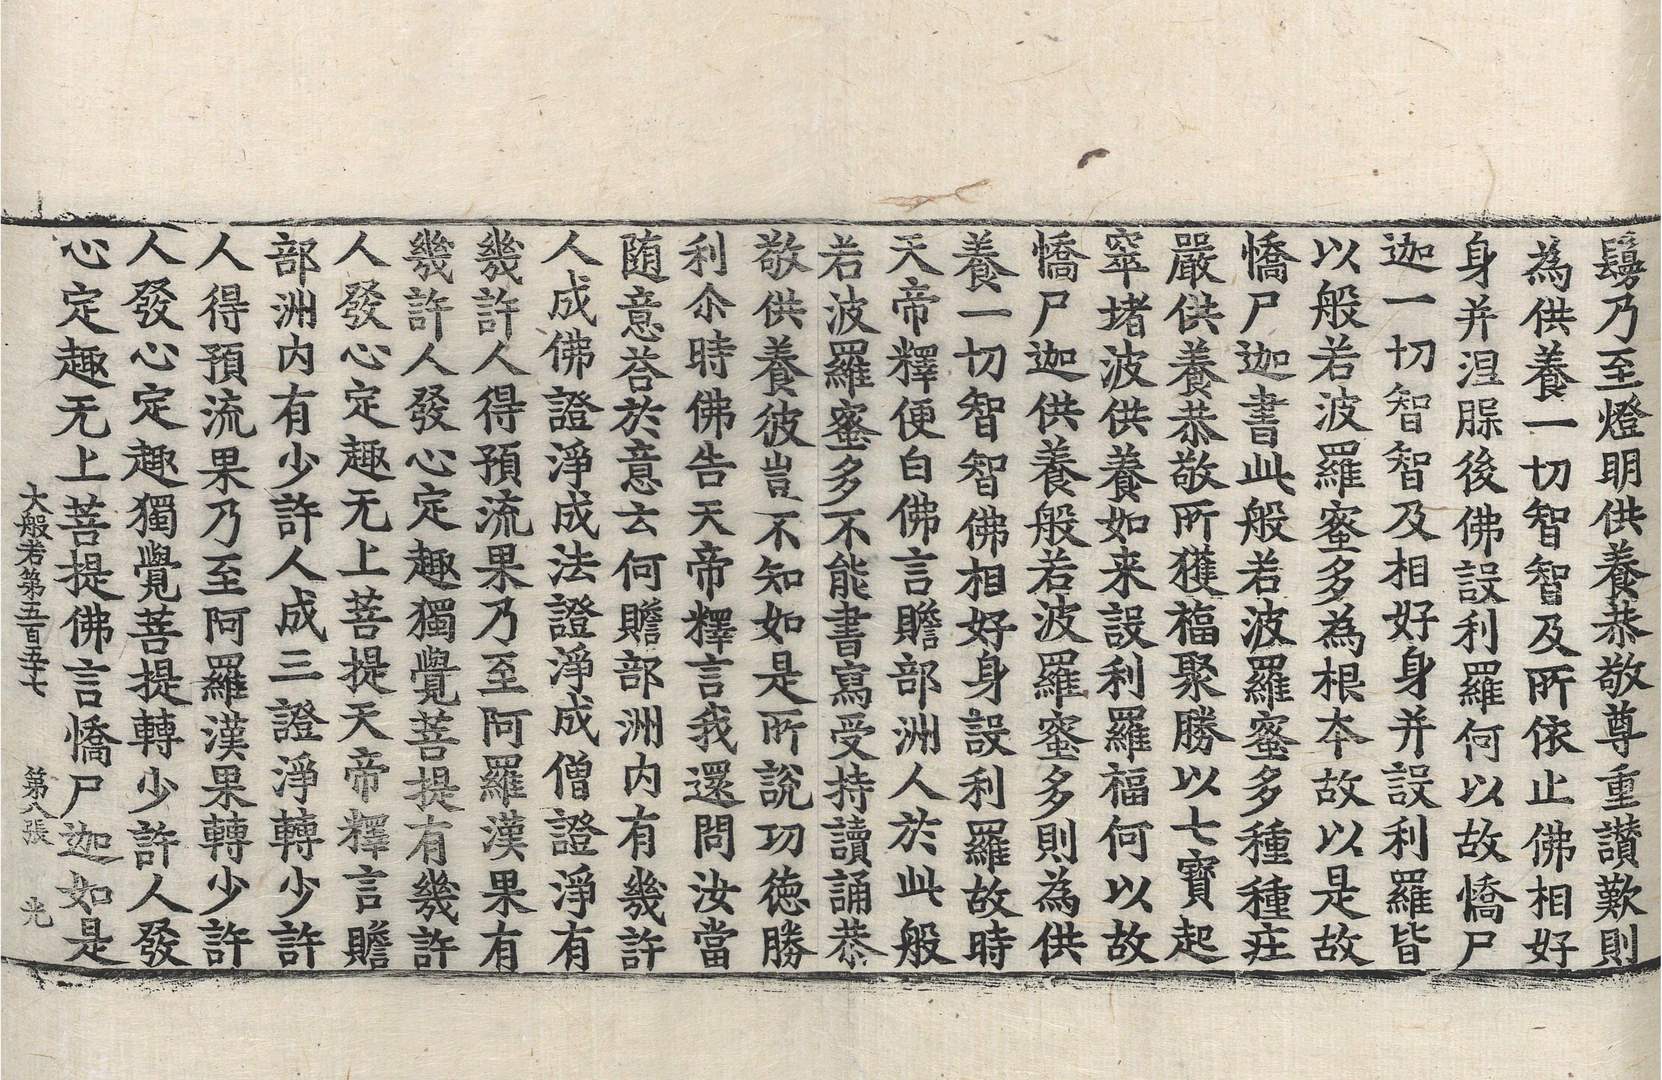 鬘乃至燈明供養恭敬尊重讃歎則
為供養一切智智及所依止佛相好
身并涅脲後佛設利羅何以故憍尸
迦一切智智及相好身并設利羅皆
以般若波羅蜜多為根本故以是故
憍尸迦書此般若波羅蜜多種種莊
嚴供養恭敬所獲福聚勝以七寶起
窣堵波供養如来設利羅福何以故
憍尸迦供養般若波羅蜜多則為供
養一切智智佛相好身設利羅故時
天帝釋便白佛言贍部洲人於此般
若波羅蜜多不能書寫受持讀誦恭
敬供養彼豈不知如是所說功德勝
利尒時佛告天帝釋言我還問汝當
随意荅於意云何贍部洲内有幾許
人成佛證淨成法證淨成僧證淨有
幾許人得預流果乃至阿羅漢果有
幾許人發心定趣獨覺菩提有幾許
人發心定趣无上菩提天帝釋言贍
部洲内有少許人成三證淨轉少許
人得預流果乃至阿羅漢果轉少許
人發心定趣獨覺菩提轉少許人發
心定趣无上菩提佛言憍尸迦如是
大般若第五百五十七　第八張　光